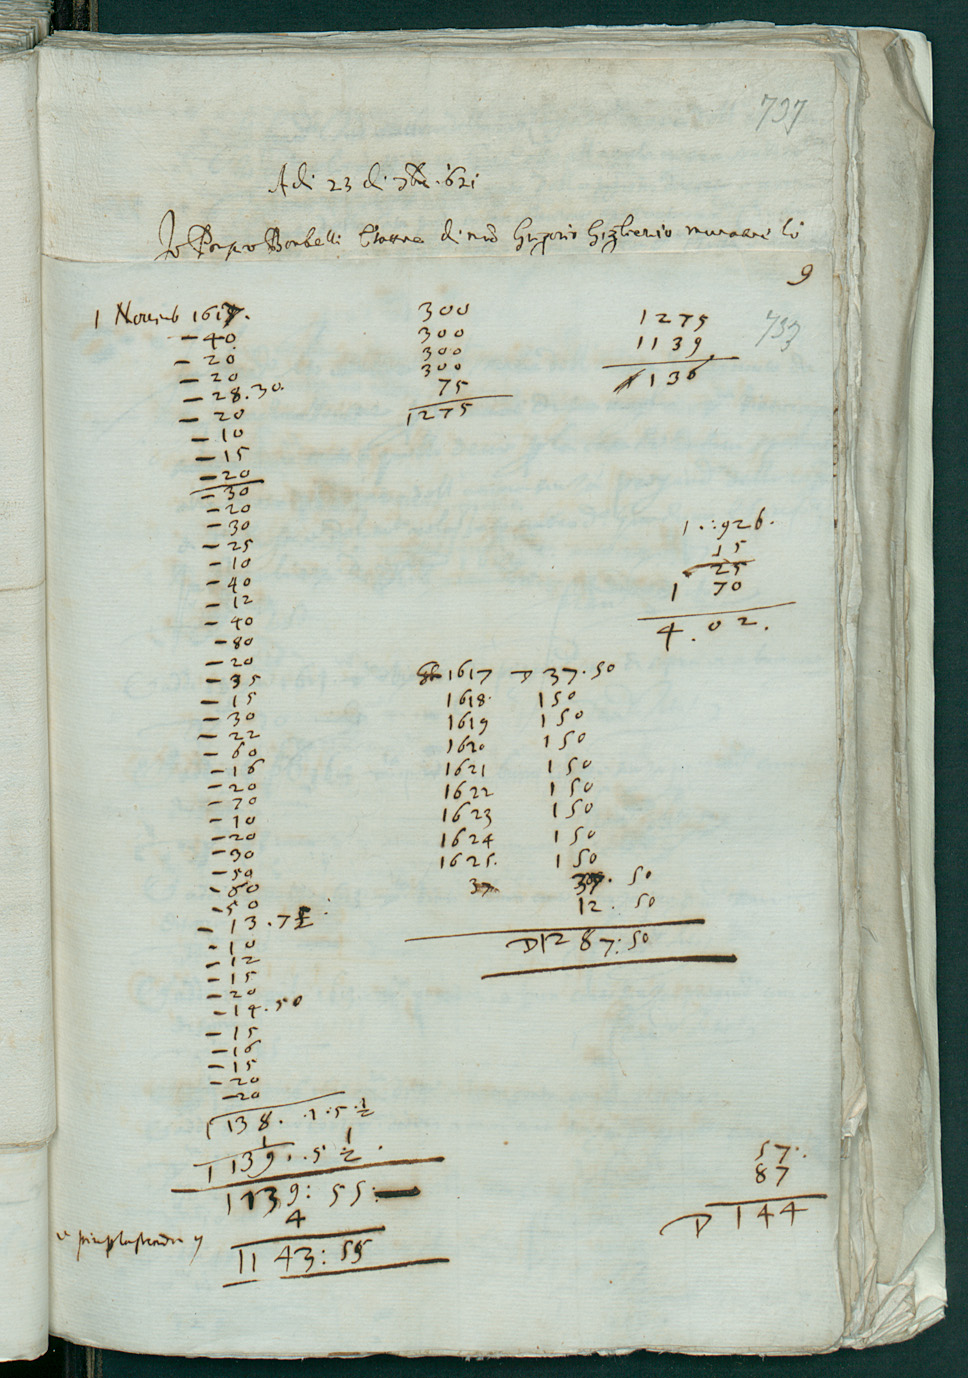 737
Adi 23 di 7bre 1621
Io
9
1 Novemb 1617.
- 40
- 20
- 20
- 28.30.
- 20
- 10
- 15
- 20
- 30
- 20
- 30
- 25
- 10
- 40
- 12
- 40
- 80
- 20
- 35
- 15
- 30
- 22
- 60
- 16
- 20
- 70
- 10
- 20
- 30
- 50
- 60
- 50
- 13.7
- 10
- 12
- 15
- 20
- 14.50
- 15
- 16
- 15
- 20
- 20
1138. .1.5.½
1
1139. .5 ½.
1139: 55.
4
1143: 55
300
300
300
300
75
1275
1275
1139
136
733
1..926.
15
25
1 70
4.02.
1617 D 37.50
1618 150
1619 150
1620 150
1621 150
1622 150
1623 150
1624 150
1625. 150
37 37. 50
12. 50
D 1287:50
57.
87
D 144